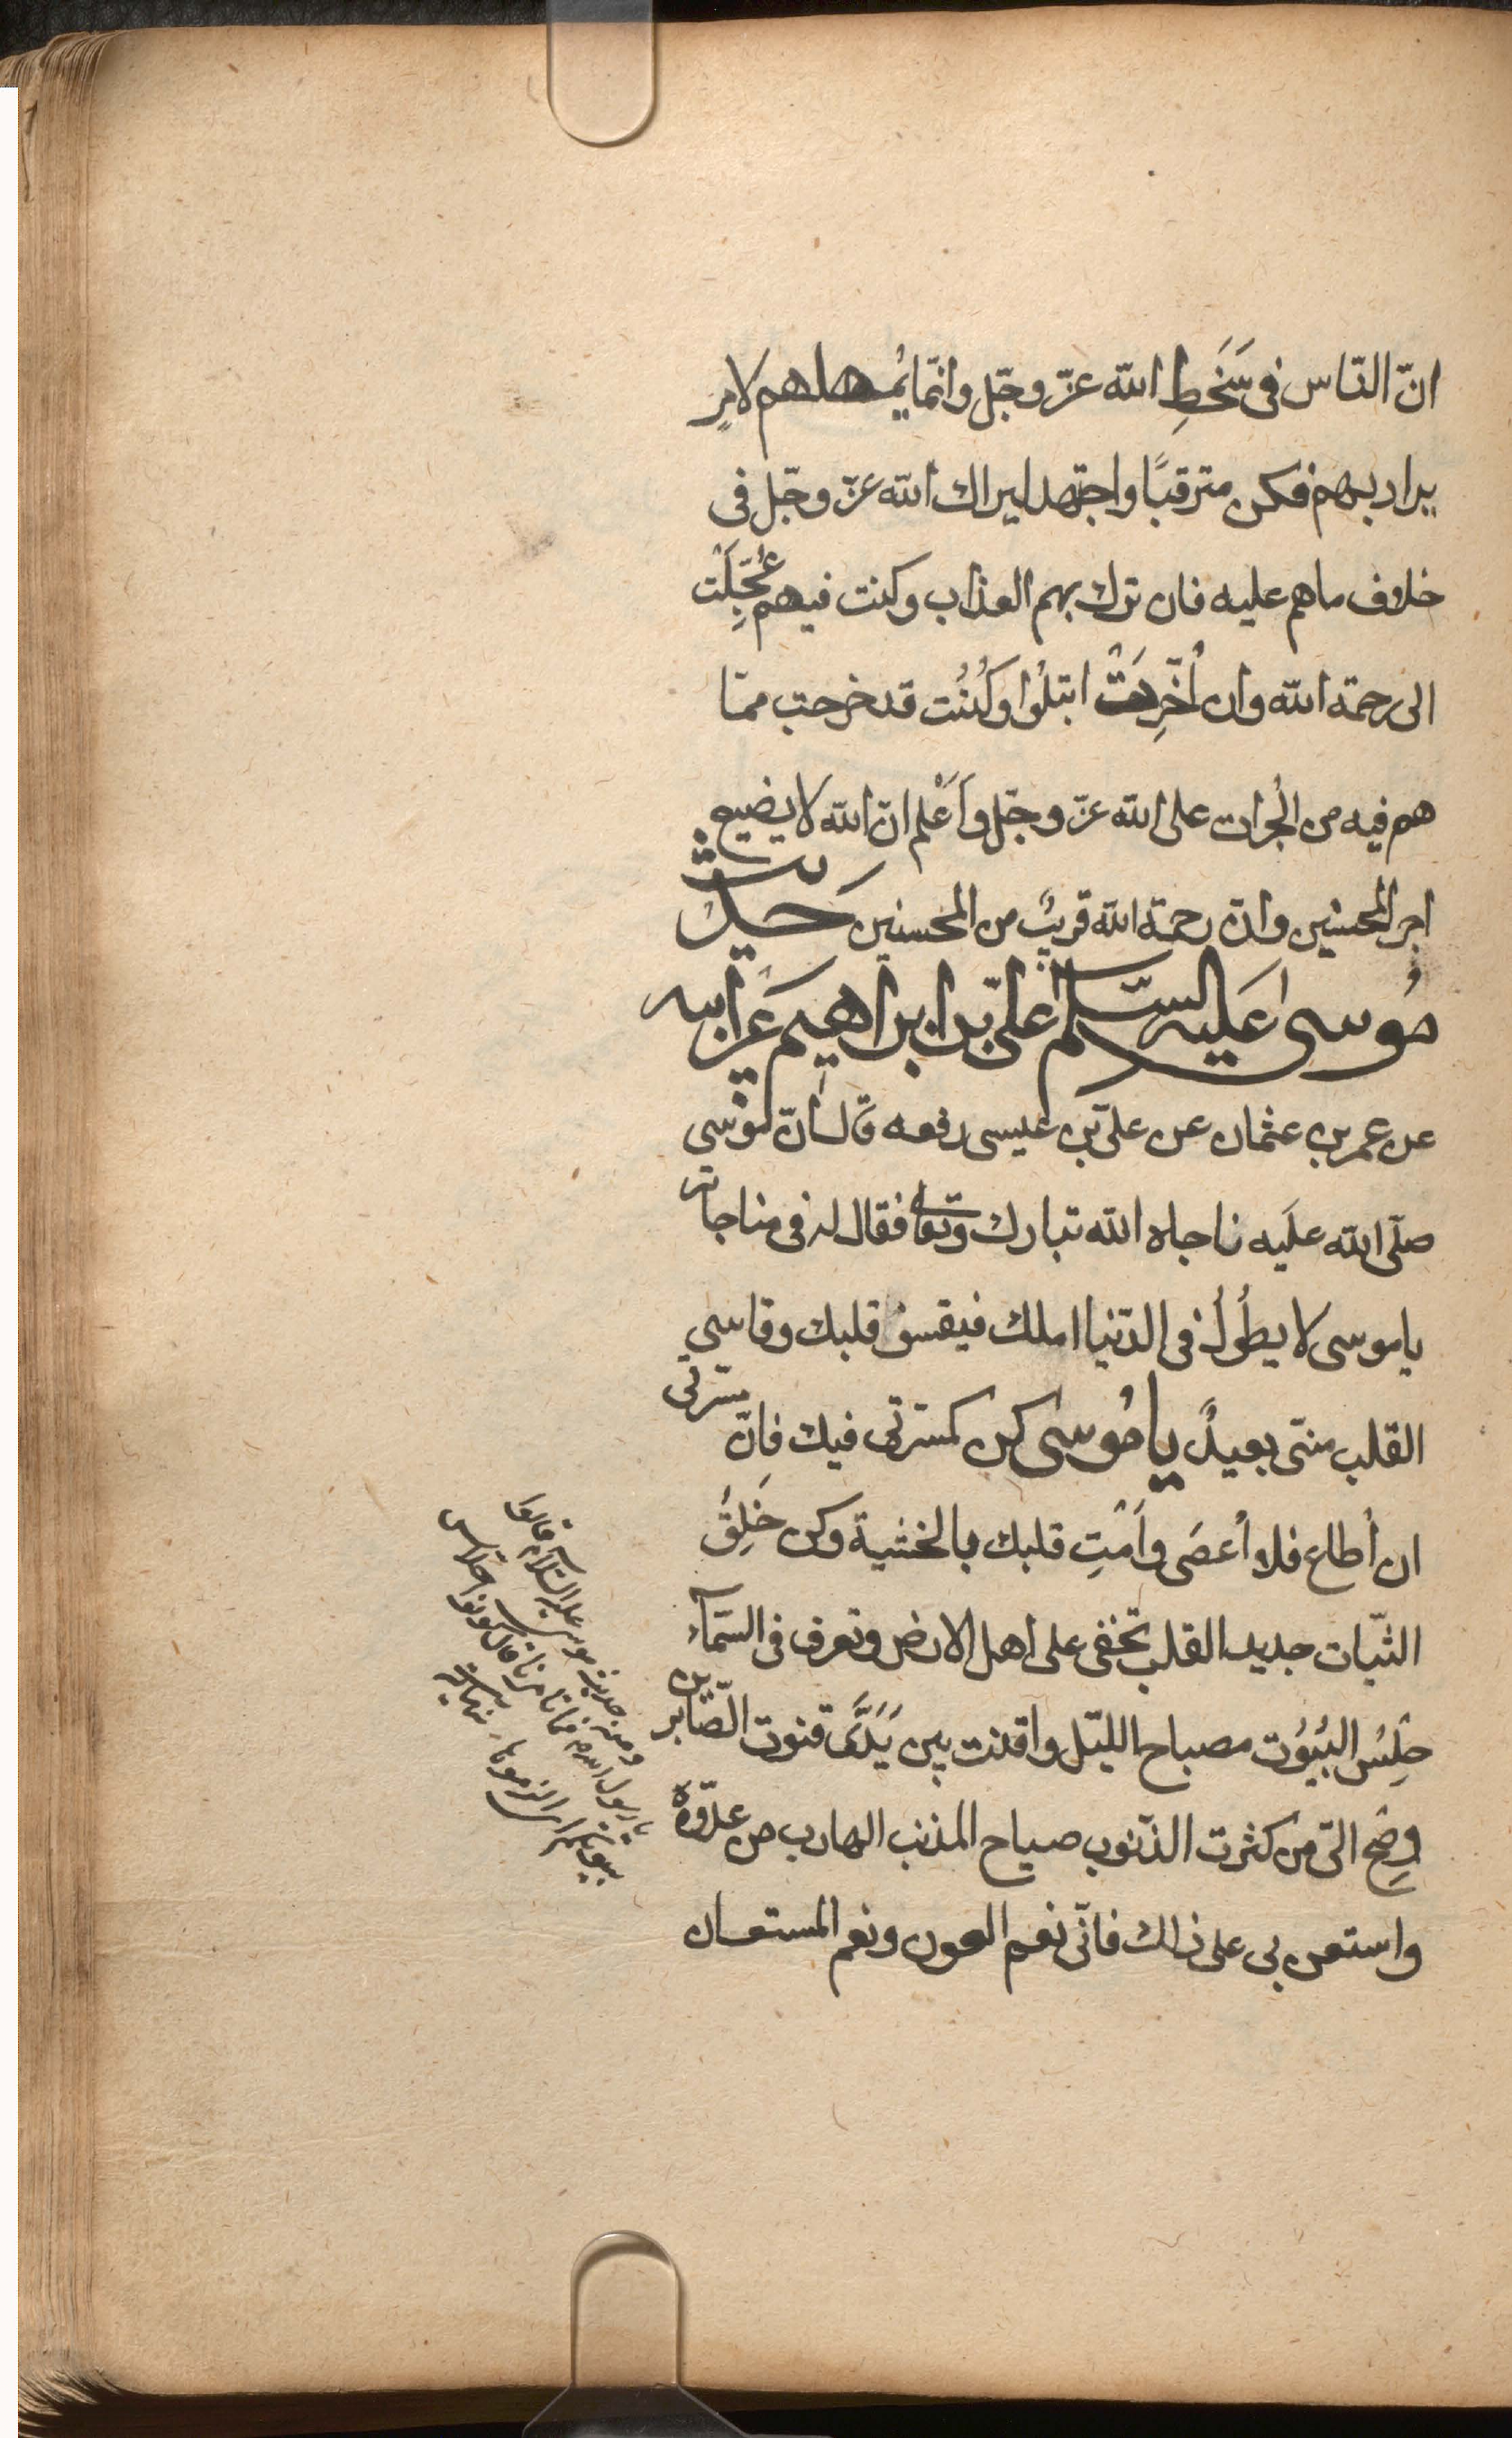 انّ النّاس فى سَخَطِ الله عزّ وجّل وانّما يُمهلهم لامرٍ
يراد بهم فكن مترقبًا واجتهد ليراك الله عزّ وجّل فى
خلاف ماهم عليه فان ترك بهم العذاب وكنت فيهم عُجِّلَت
الى رحمة الله وان اُخِّرتَ ابتلُوا وكُنْت قد خرجت ممّا
هم فيه من الجُرات على الله عزّ وجّل وَاعْلم انّ الله لا يضيع
اجر المحسنين وانّ رحمة الله قريبٌ من المحسنين حَديث
مُوسى عَليه السّلام علىّ بن ابراهيم عَن ابيه
عن عمر بن عثمان عن علىّ بن عيسى رفعه قال انّ مُوسى
صلّى الله علَيه ناجاه الله تبارك وتعالى فقال له فى مناجاته
ياموسى لا يطُولُ فى الدّنيا املك فيقسوُ قلبك وقاسي
القلب منّى بعيدٌ يا مُوسى كن كمسرّتى فيك فانّ مسرتى
ان أطاع فلا اُعصَى وَاَمْتِ قلبك بالخشية وكن خَلِقُ
الثّبات جديد القلب تخفى على اهل الارض وتعرف فى السّمآء
حِلِسُ البُيُوت مصباح اللّيل واقنت بين يَدَىَّ قنوت الصّابرين
وصِحِ الىّ من كثرت الذّنوب صياح المذنب الهارب من عدّوهُ
واستعن بى على ذالك فانّى نعم العون ونعم المستعان
ومنه حديث موسى عليه السّلام قالوا
يا رسول الله فما تامرنا قال كونوا احلاس
بيوتكم اى الزموها نهاية